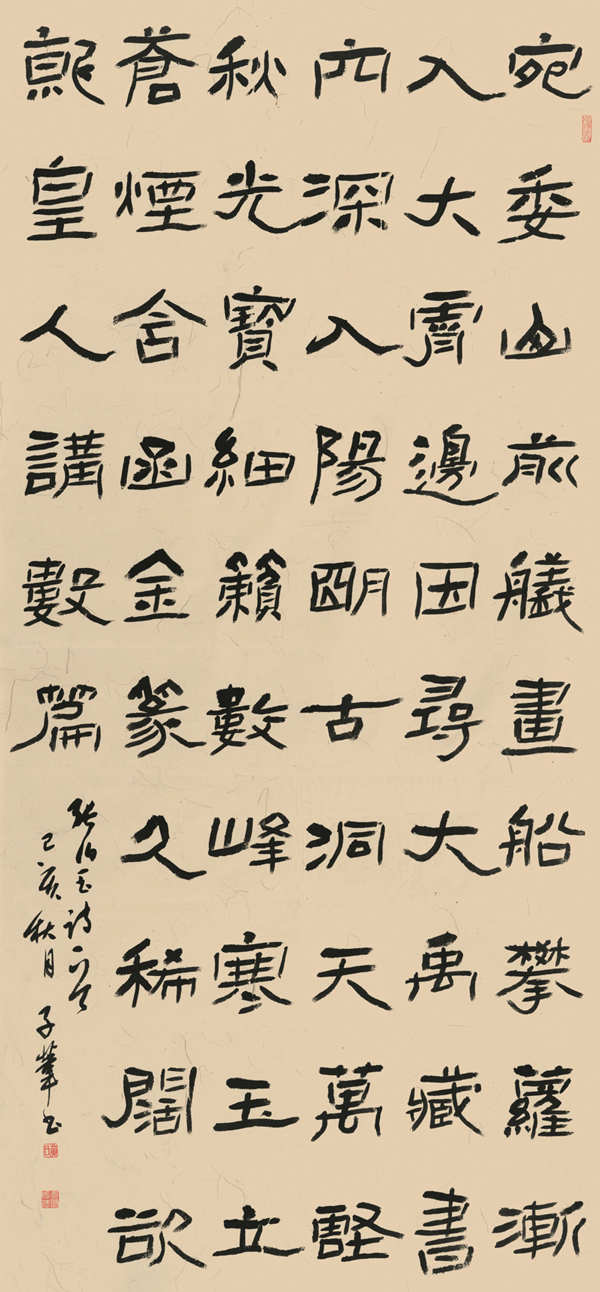 宛委山前艤畫船攀蘿漸
入大霄邊因尋大禹藏書
穴深入陽明古洞天萬壑
秋光寶細籟數峰寒玉立
蒼煙含函金篆久稀闊欲
就皇人講數篇
張伯玉詩一首
己亥秋月子書